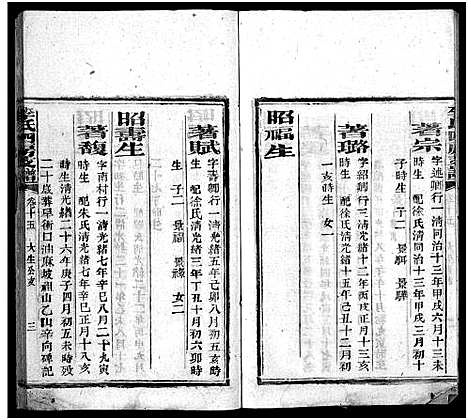 李氏四房支譜
著宗
字述卿行一清同治十三年甲戌六月十三未
時生 配徐氏清同治十三年甲戌三月初十
子時生 子二 景 景驊
昭福生
著璐
字紹卿行三清光緒十二年丙戌正月十三亥
時生 配徐氏清光緒十五年己丑十二月初
一亥時生
著賦
字書卿行一清光緒五年己卯八月初五亥
時生 配徐氏清光緒三年丁丑十月初六卯時
生 子二 景 景 女二
昭壽生
著馥
字南村行一清光緒七年辛巳八月二十九寅
時生 配朱氏清光緒七年辛巳正月十八亥
時生清光緒二十六年庚子四月初五未時歿
二十歲葬旱衝口油麻坡祖山乙山辛向碑記
李氏四房支譜
卷十五
大生公亥
三